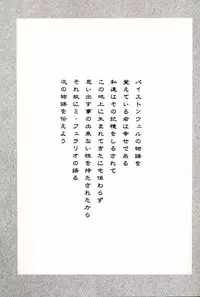 バイストンウェルの物語を
覚えている者は幸せである
私達はその記憶をしるされて
この地上に生まれてきたにも係わらず
思い出す事の出来ない性を持たされたから
それ故にミ・フェラリオの語る
次の物語を伝えよう